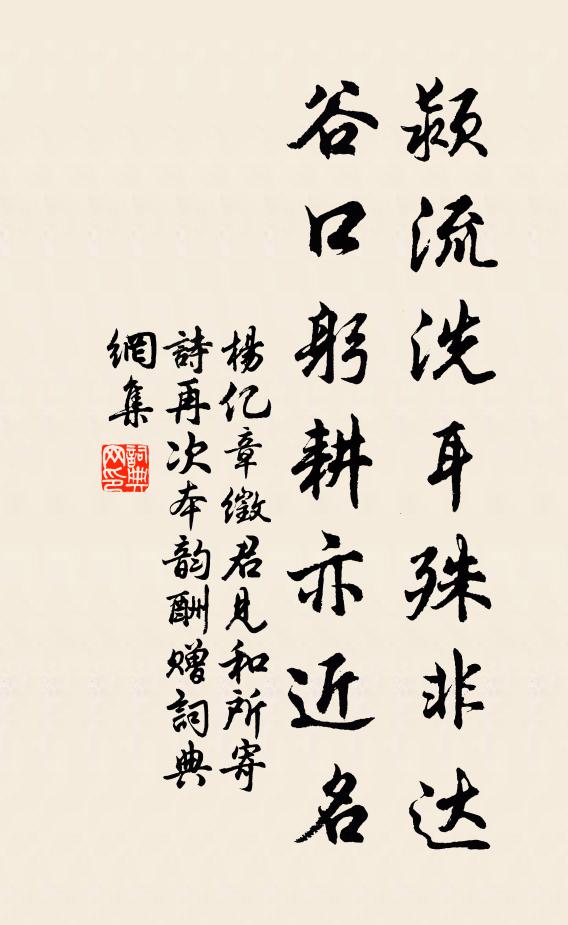 颍流洗耳殊非达
谷口躬耕亦近名
楊亿章徵君見和所寄
詩再次本韵酬赠詞典
網集
詞典
网印